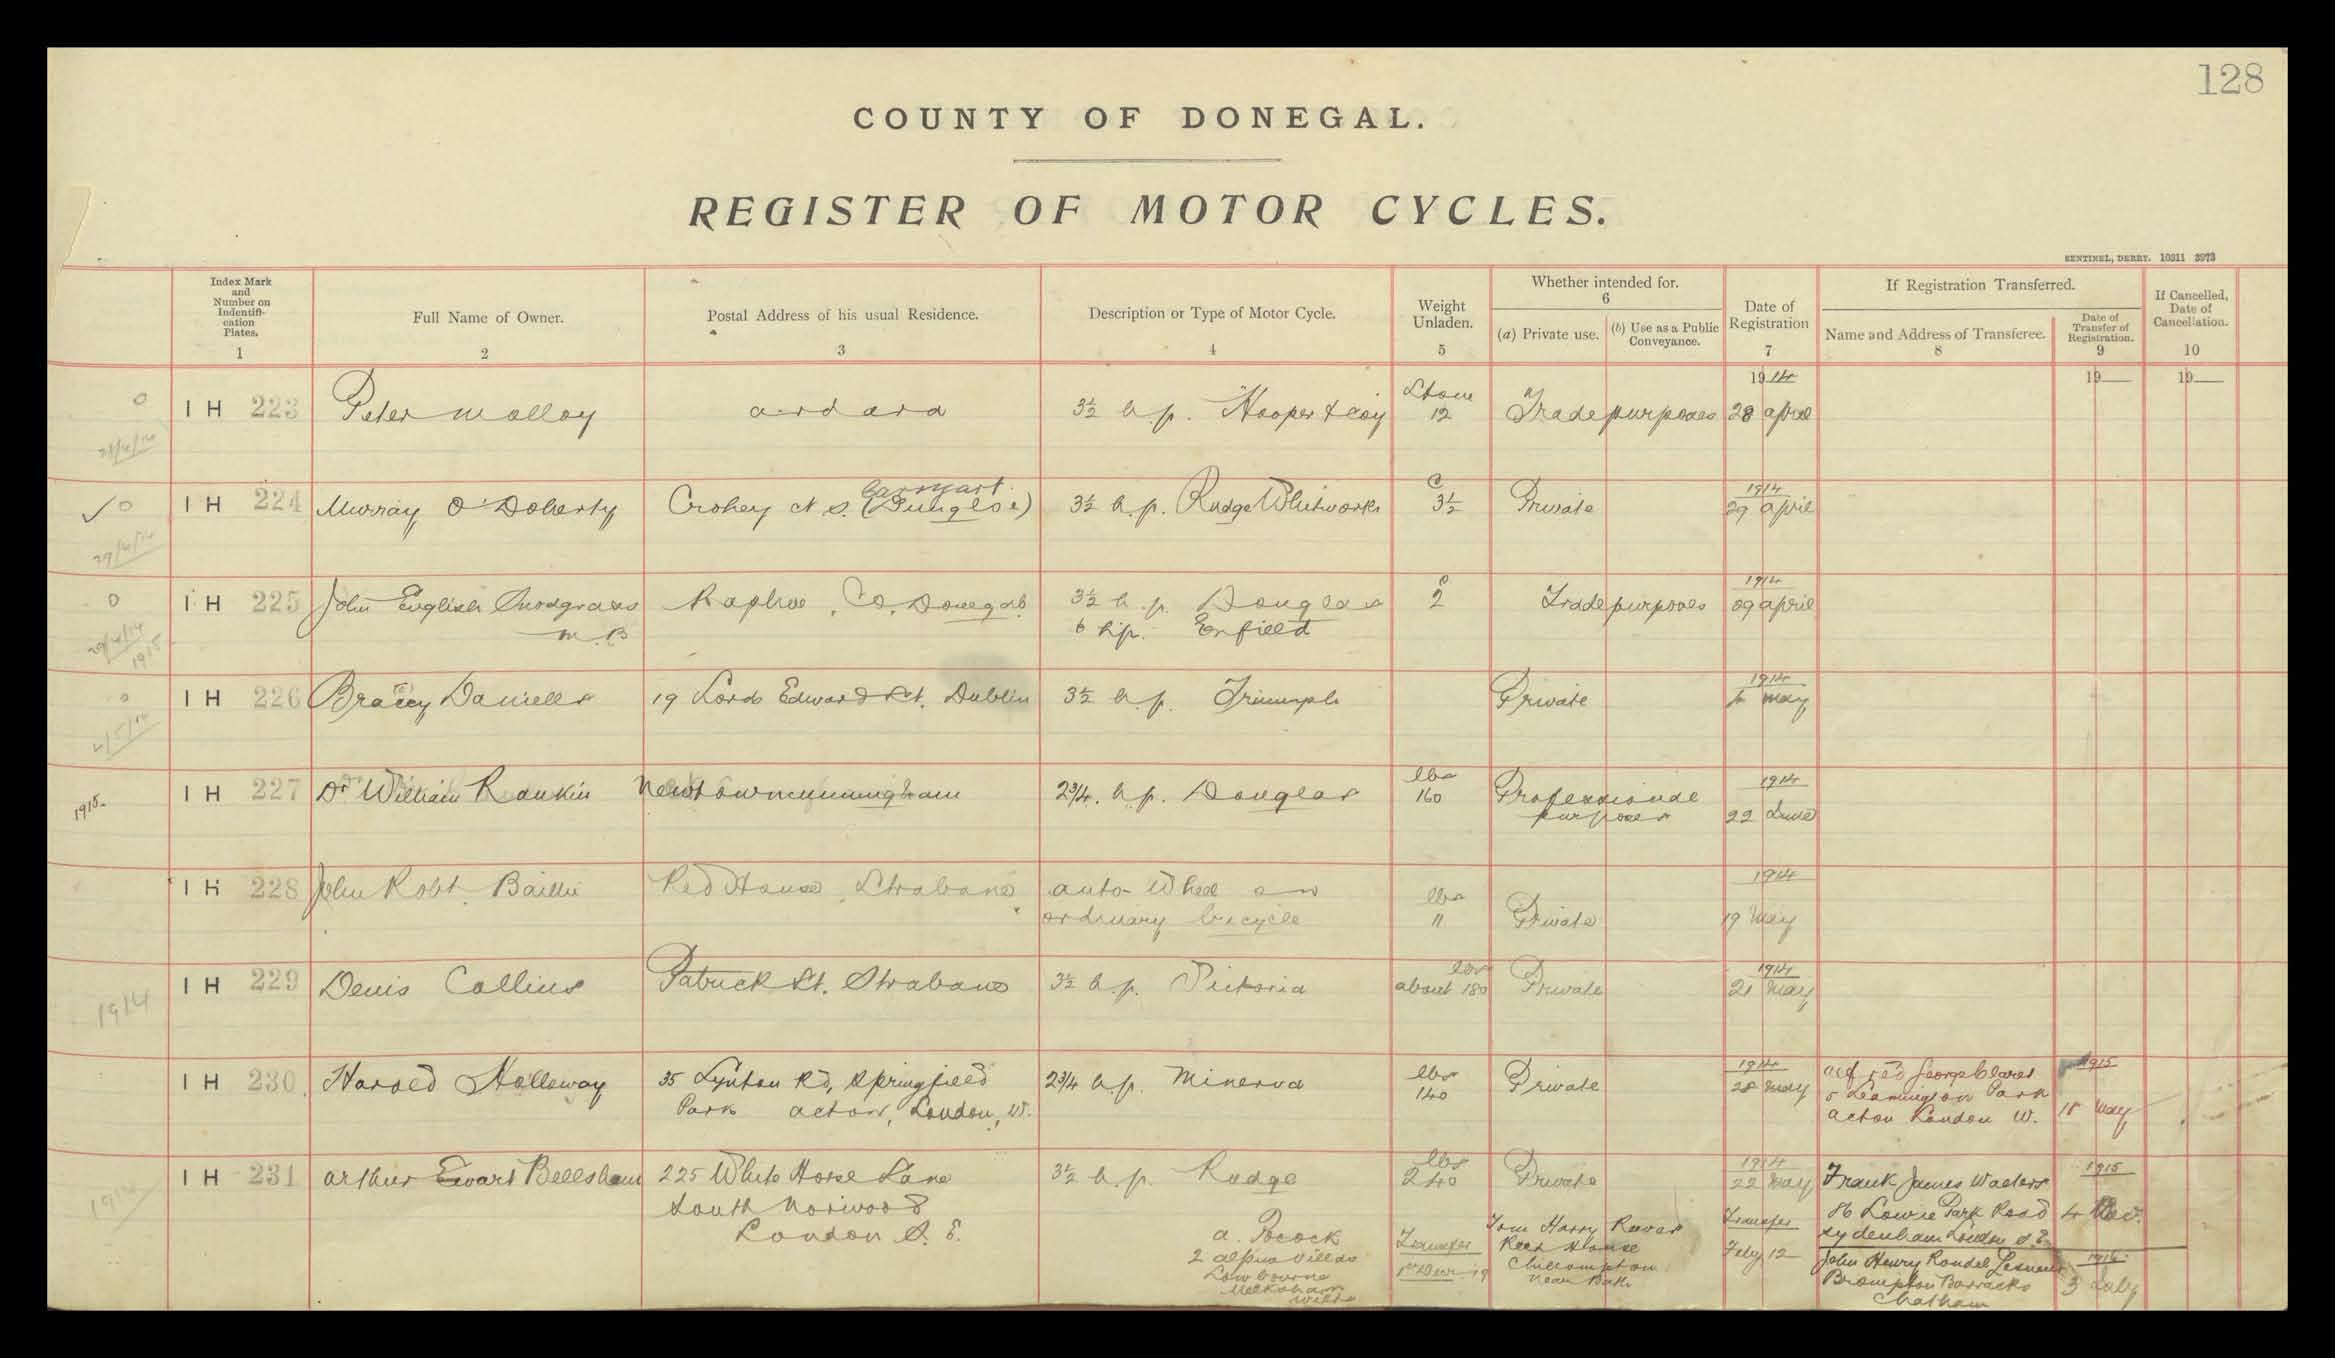 128
COUNTY OF DONEGAL.
REGISTER OF MOTOR CYCLES.
SENTINEL, DERRY. 10311 3973
Index Mark and Number on Indentifi-cation Plates. 1
Full Name of Owner. 2
Postal Address of his usual Residence. 3
Description or Type of Motor Cycle. 4
Weight Unladen. 5
Whether intended for. 6
(a) Private use.
(b) Use as a Public Conveyance.
Date of Registration 7
If Registration Transferred.
Name and Address of Transferee. 8
Date of Transfer of Registration. 9
If Cancelled, Date of Cancellation. 10
1914 19 19
0 IH 223 Peter Molloy ardara 3½ h.p. Hooper & Coy Stone 12 Trade purposes 28 april
28/4/14
1914
Carryart.
✓ 0 IH 224 Murray O'Doherty Crohey ct s. (Dungloe) 3½ h.p. Rudge Whitworth C 3½ Private 29 april
29/4/14
1914
0 IH 225 John English Snodgrass Raphoe, Co. Donegal. 3½ h.p. Douglas C 2 Trade purposes 29 april
M.B 6 h.p. Enfield
29/4/14
1915
1914
0 IH 226 Bracey Daniells 19 Lord Edward St. Dublin 3½ h.p. Triumph Private 4 May
4/5/14
1914
1915 IH 227 Dr William Rankin Newtowncunningham 2¾ h.p. Douglas lbs 160 Professional purposes 22 June
1914
IH 228 John Robt. Baillie Red House, Strabane auto-Wheel on
ordinary bicycle lbs 11 Private 19 May
1914
1914 IH 229 Denis Collins Patrick St. Strabane 3½ h.p. Victoria lbs about 180 Private 21 May
1914 1915
IH 230 Harold Holloway 35 Lynton Rd, Springfield 2¾ h.p. Minerva lbs 140 Private 28 May George Clares
Park Acton, London, W. 5 Leamington Park 18 May
Acton London W.
1914 1915
1914 IH 231 Arthur Ewart Bellsham 225 White Horse Lane 3½ h.p. Rudge lbs 240 Private 22 May Frank James Walters
South Norwood 86 Lowrie Park Road 4 Nov.
London S.E. Sydenham London S.E.
a. Pocock Transfer Tom Harry Reeves Transfer
2 alpin Villas 1st Decr 19 Reed House Feby 12 John Henry Randel 1916
Lowbourne Chillompton Brompton Barracks 3 July
Melksham near Bath Chatham
Wilts